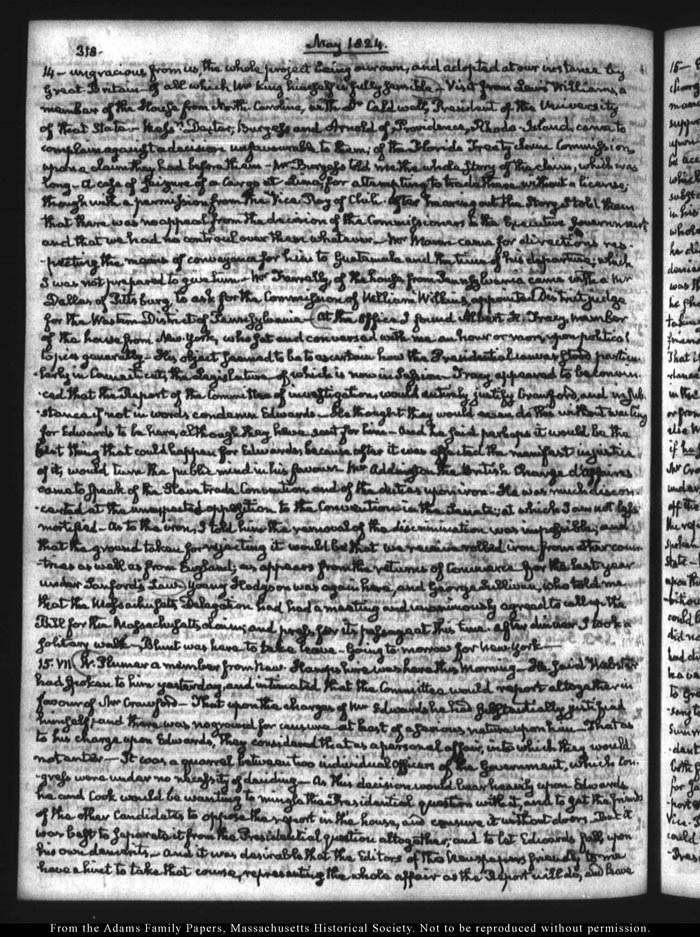 318.
May 1824.
14 - ungracious from us, the whole project being our own, and adopted at our instance by
Great Britain - of all which Mr King himself is fully sensible - Visit from Lewis Williams, a
member of the House from North-Carolina, with Dr Caldwell, President of the University
of that State - Messrs Dexter, Burgess and Arnold of Providence, Rhode-Island came to
complain against a decision unfavourable to them, of the Florida Treaty claim Commission
upon a claim they had before them - Mr Burgess told me the whole Story of the claim, which was
long - A case of seizure of a Cargo at Lima, for attempting to trade there without a license;
though with a permission from the Vice-Roy of Chili. After hearing out the Story, I told them
that there was no appeal from the decision of the Commissioners to the Executive Government
and that we had no controul over them whatever - Mr Mann came for directions res-
-pecting the means of conveyance for him to Guatemala and the time of his departure; which
I was not prepared to give him - Mr Farrelly of the house from Pennsylvania came with a Mr
Dallas of Pittsburg, to ask for the Commission of William Wilkins, appointed District judge
for the Western District of Pennsylvania - At the Office I found Albert H. Tracy, member
of the house from New-York, who sat and conversed with me an hour or more, upon political
topics generally - His object seemed to be to ascertain how the Presidential canvas stood particu-
-larly in Connecticut, the Legislature of which is now in Session. Tracy appeared to be convin-
-ced that the Report of the Committee of investigation, would entirely justify Crawford, and in sub-
-stance if not in words condemn Edwards - He thought they would even do this without waiting
for Edwards to be here, although they have sent for him - And he said perhaps it would be the
best thing that could happen for Edwards; because after it was effected the manifest injustice
of it, would turn the public mind in his favour. Mr Addington the British Chargé d'Affaires
came to speak of the Slave trade Convention, and of the duties upon iron - He was much discon-
-certed at the unexpected opposition to the Convention in the Senate; at which I am not less
mortified - As to the iron, I told him the removal of the discrimination was impossible; and
that the ground taken for rejecting it would be that we receive rolled iron from other coun-
-tries as well as from England; as appears from the returns of Commerce for the last year
under Sanford's Law - Young Hodgson was again here, and George Sullivan, who told me
that the Massachusetts Delegation had had a meeting and unanimously agreed to call up the
Bill for the Massachusetts claim; and press for its passage at this time. After dinner I took a
solitary walk - Blunt was here to take leave - Going to morrow for New-York -
15. VII. W. Plumer a member from New-Hampshire was here this Morning - He said Webster
had spoken to him yesterday, and intimated that the Committee would report altogether in
favour of Mr Crawford - That upon the charges of Mr Edwards he had substantially justified
himself; and there was no ground for censure at least of a serious nature upon him - That as
to his charge upon Edwards, they considered that as a personal affair, into which they would
not enter - It was a quarrel between two individual officers of the Government, which Con-
-gress were under no necessity of deciding - As this decision would bear heavily upon Edwards
he and Cook would be wanting to mingle the Presidential question with it, and to get the friends
of the other Candidates to oppose the report in the house, and censure it without doors. But it
was best to separate it from the Presidential question altogether, and to let Edwards fall upon
his own demerits - And it was desirable that the Editors of the Newspapers friendly to me
have a hint to take that course, representing the whole affair as the Report will do, and leave
From the Adams Family Papers, Massachusetts Historical Society. Not to be reproduced without permission.